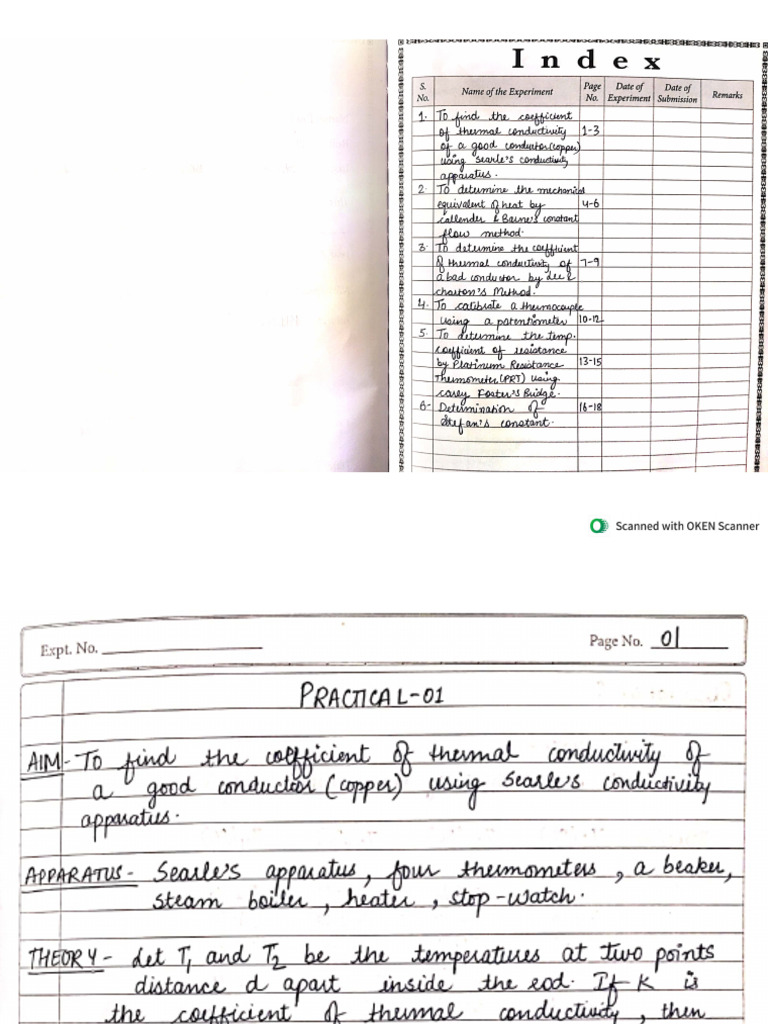 Index
S. No. Name of the Experiment Page No. Date of Experiment Date of Submission Remarks
1. To find the coefficient
of thermal conductivity 1-3
of a good conductor(copper)
using Searle's conductivity
apparatus.
2. To determine the mechanical
equivalent of heat by 4-6
Callender & Barne's constant
flow method.
3. To determine the coefficient
of thermal conductivity of 7-9
a bad conductor by Lee &
charton's Method.
4. To calibrate a thermocouple
using a potentiometer 10-12
5. To determine the temp.
coefficient of resistance
by Platinum Resistance 13-15
Thermometer(PRT) using
carey Foster's Bridge.
6- Determination of 16-18
Stefan's constant.
Scanned with OKEN Scanner
Expt. No. Page No. 01
PRACTICAL-01
AIM- To find the coefficient of thermal conductivity of
a good conductor (copper) using Searle's conductivity
apparatus.
APPARATUS- Searle's apparatus, four thermometers, a beaker,
steam boiler, heater, stop-watch.
THEORY- Let T₁ and T₂ be the temperatures at two points
distance d apart inside the rod. If K is
the coefficient of thermal conductivity, then